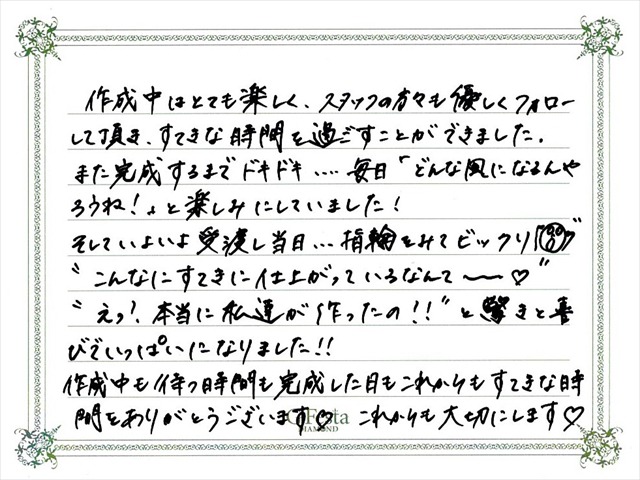 作成中はとても楽しく、スタッフの方々も優しくフォロー
して頂き、すてきな時間を過ごすことができました。
また完成するまでドキドキ…. 毎日「どんな風になるんや
ろうね！」と楽しみにしていました！
そしていよいよ受渡し当日… 指輪をみてビックリ
"こんなにすてきに仕上がっているなんて〜♡"
"えっ？本当に私達が作ったの！！"と驚きと喜
びでいっぱいになりました!!
作成中も待つ時間も完成した日もこれからもすてきな時
間をありがとうございます♡ これからも大切にします♡
Festa
DIAMOND